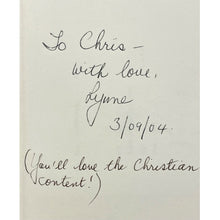 To Chris –
with love,
Lynne
3/09/04.
(You'll love the Christian
content!)